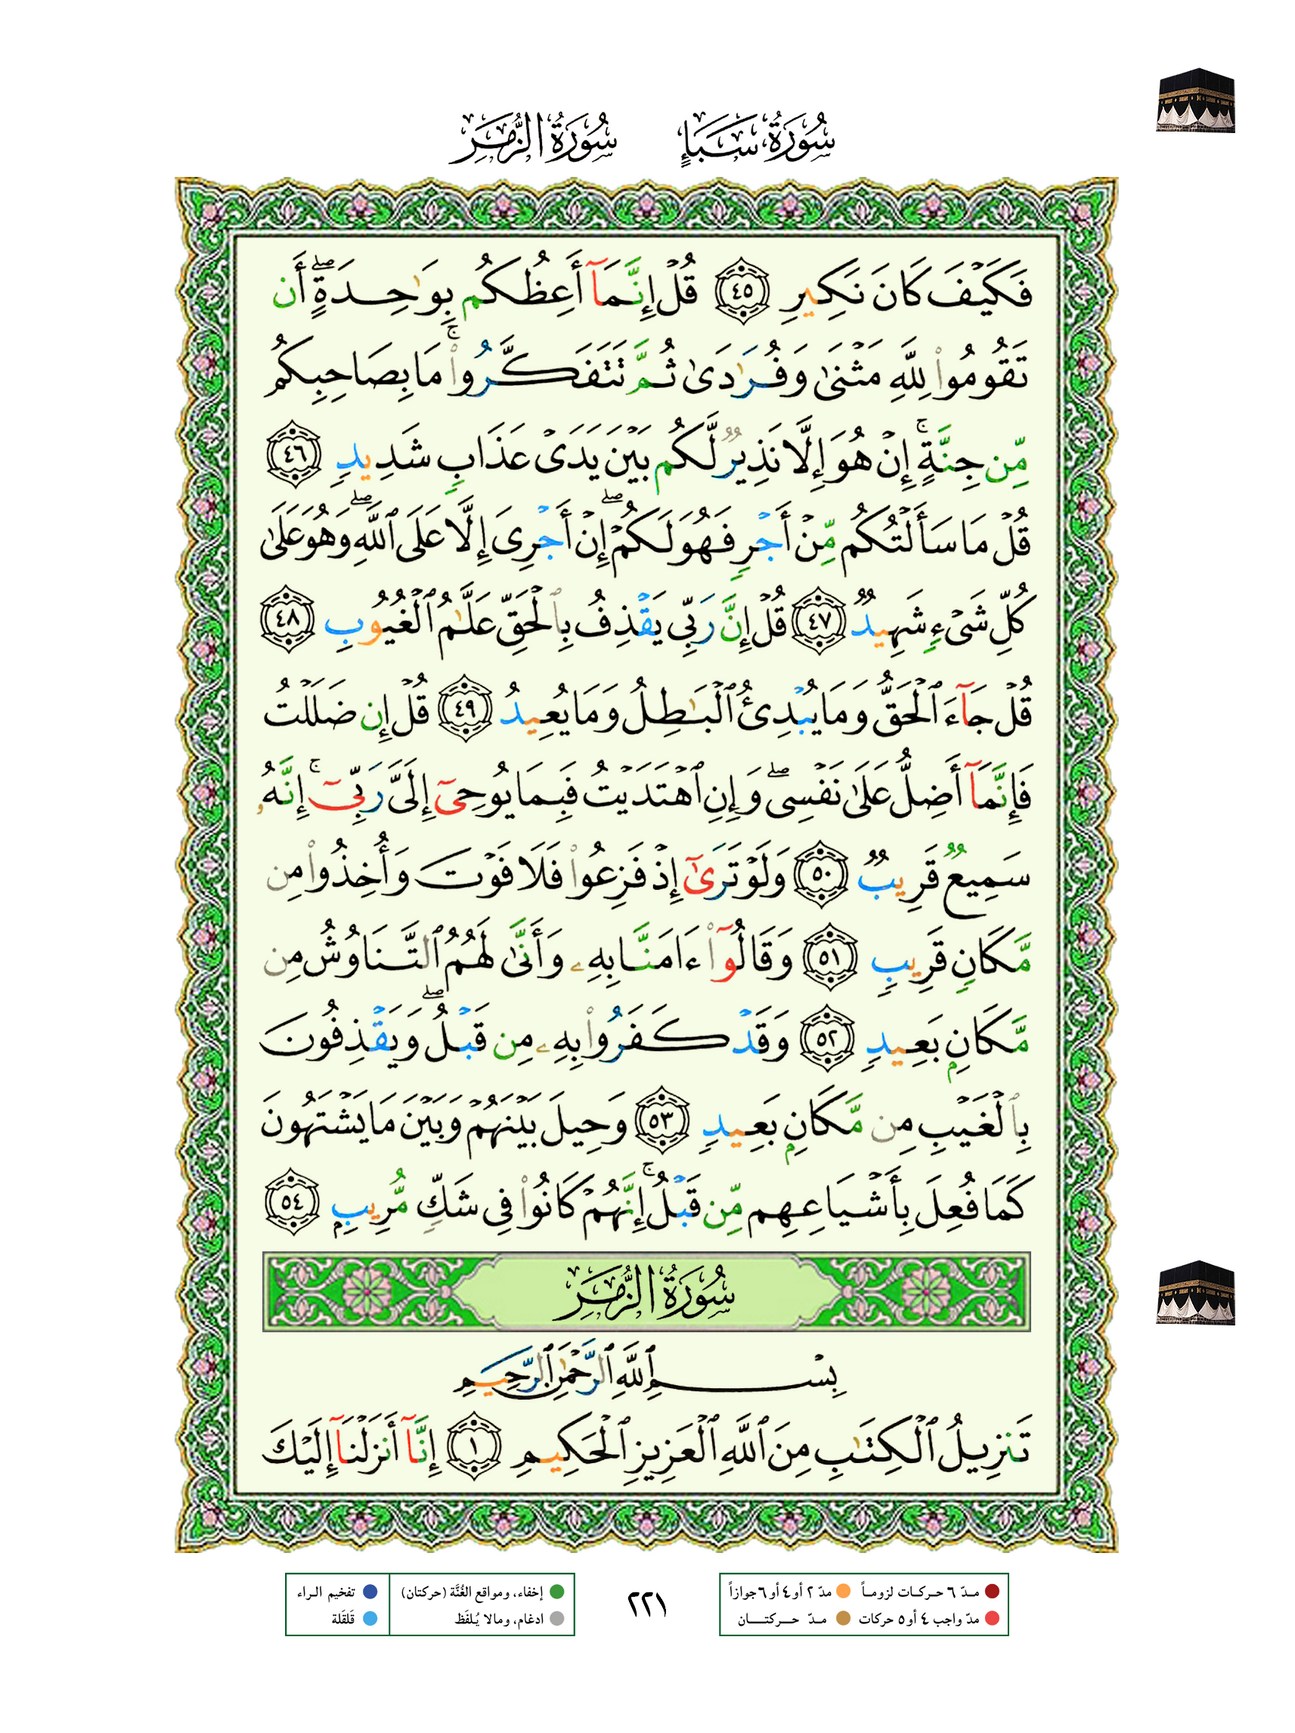 سُورَةُ سَبَإٍ سُورَةُ الزُّمَرِ
فَكَيْفَ كَانَ نَكِيرِ ٤٥ قُلْ إِنَّمَآ أَعِظُكُم بِوَٰحِدَةٍۖ أَن
تَقُومُوا۟ لِلَّهِ مَثْنَىٰ وَفُرَٰدَىٰ ثُمَّ تَتَفَكَّرُوا۟ۚ مَا بِصَاحِبِكُم
مِّن جِنَّةٍۚ إِنْ هُوَ إِلَّا نَذِيرٌ لَّكُم بَيْنَ يَدَىْ عَذَابٍ شَدِيدٍ ٤٦
قُلْ مَا سَأَلْتُكُم مِّنْ أَجْرٍ فَهُوَ لَكُمْۖ إِنْ أَجْرِىَ إِلَّا عَلَى ٱللَّهِۖ وَهُوَ عَلَىٰ
كُلِّ شَىْءٍ شَهِيدٌ ٤٧ قُلْ إِنَّ رَبِّى يَقْذِفُ بِٱلْحَقِّ عَلَّٰمُ ٱلْغُيُوبِ ٤٨
قُلْ جَآءَ ٱلْحَقُّ وَمَا يُبْدِئُ ٱلْبَٰطِلُ وَمَا يُعِيدُ ٤٩ قُلْ إِن ضَلَلْتُ
فَإِنَّمَآ أَضِلُّ عَلَىٰ نَفْسِىۖ وَإِنِ ٱهْتَدَيْتُ فَبِمَا يُوحِىٓ إِلَىَّ رَبِّىٓۚ إِنَّهُۥ
سَمِيعٌ قَرِيبٌ ٥٠ وَلَوْ تَرَىٰٓ إِذْ فَزِعُوا۟ فَلَا فَوْتَ وَأُخِذُوا۟ مِن
مَّكَانٍ قَرِيبٍ ٥١ وَقَالُوٓا۟ ءَامَنَّا بِهِۦ وَأَنَّىٰ لَهُمُ ٱلتَّنَاوُشُ مِن
مَّكَانٍۭ بَعِيدٍ ٥٢ وَقَدْ كَفَرُوا۟ بِهِۦ مِن قَبْلُۖ وَيَقْذِفُونَ
بِٱلْغَيْبِ مِن مَّكَانٍۭ بَعِيدٍ ٥٣ وَحِيلَ بَيْنَهُمْ وَبَيْنَ مَا يَشْتَهُونَ
كَمَا فُعِلَ بِأَشْيَاعِهِم مِّن قَبْلُۚ إِنَّهُمْ كَانُوا۟ فِى شَكٍّ مُّرِيبٍۭ ٥٤
سُورَةُ الزُّمَرِ
بِسْمِ ٱللَّهِ ٱلرَّحْمَٰنِ ٱلرَّحِيمِ
تَنزِيلُ ٱلْكِتَٰبِ مِنَ ٱللَّهِ ٱلْعَزِيزِ ٱلْحَكِيمِ ١ إِنَّآ أَنزَلْنَآ إِلَيْكَ
مدّ ٦ حركات لزوماً مدّ ٢ أو ٤ أو ٦ جوازاً
مدّ واجب ٤ أو ٥ حركات مدّ حركتان
٢٢١
إخفاء، ومواقع الغُنَّة (حركتان) تفخيم الراء
ادغام، ومالا يُلفَظ قَلقَلة